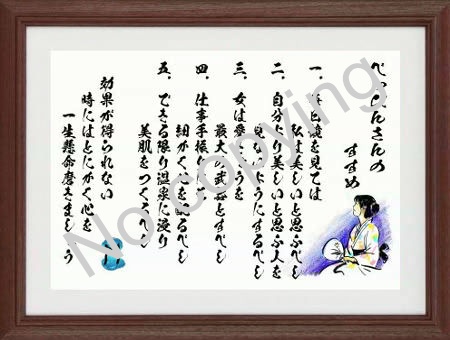 べっぴんさんの
すすめ
一、毎日鏡を見ては
私は美しいと思ふべし
二、自分より美しいと思ふ人を
見ないようにするべし
三、女は愛きょうを
最大の武器とすべし
四、仕事手振り
細かく心を配るべし
五、できる限り温泉に浸り
美肌をつくるべし
効果が得られない
時にはとにかく心を
一生懸命磨きましょう
No copying